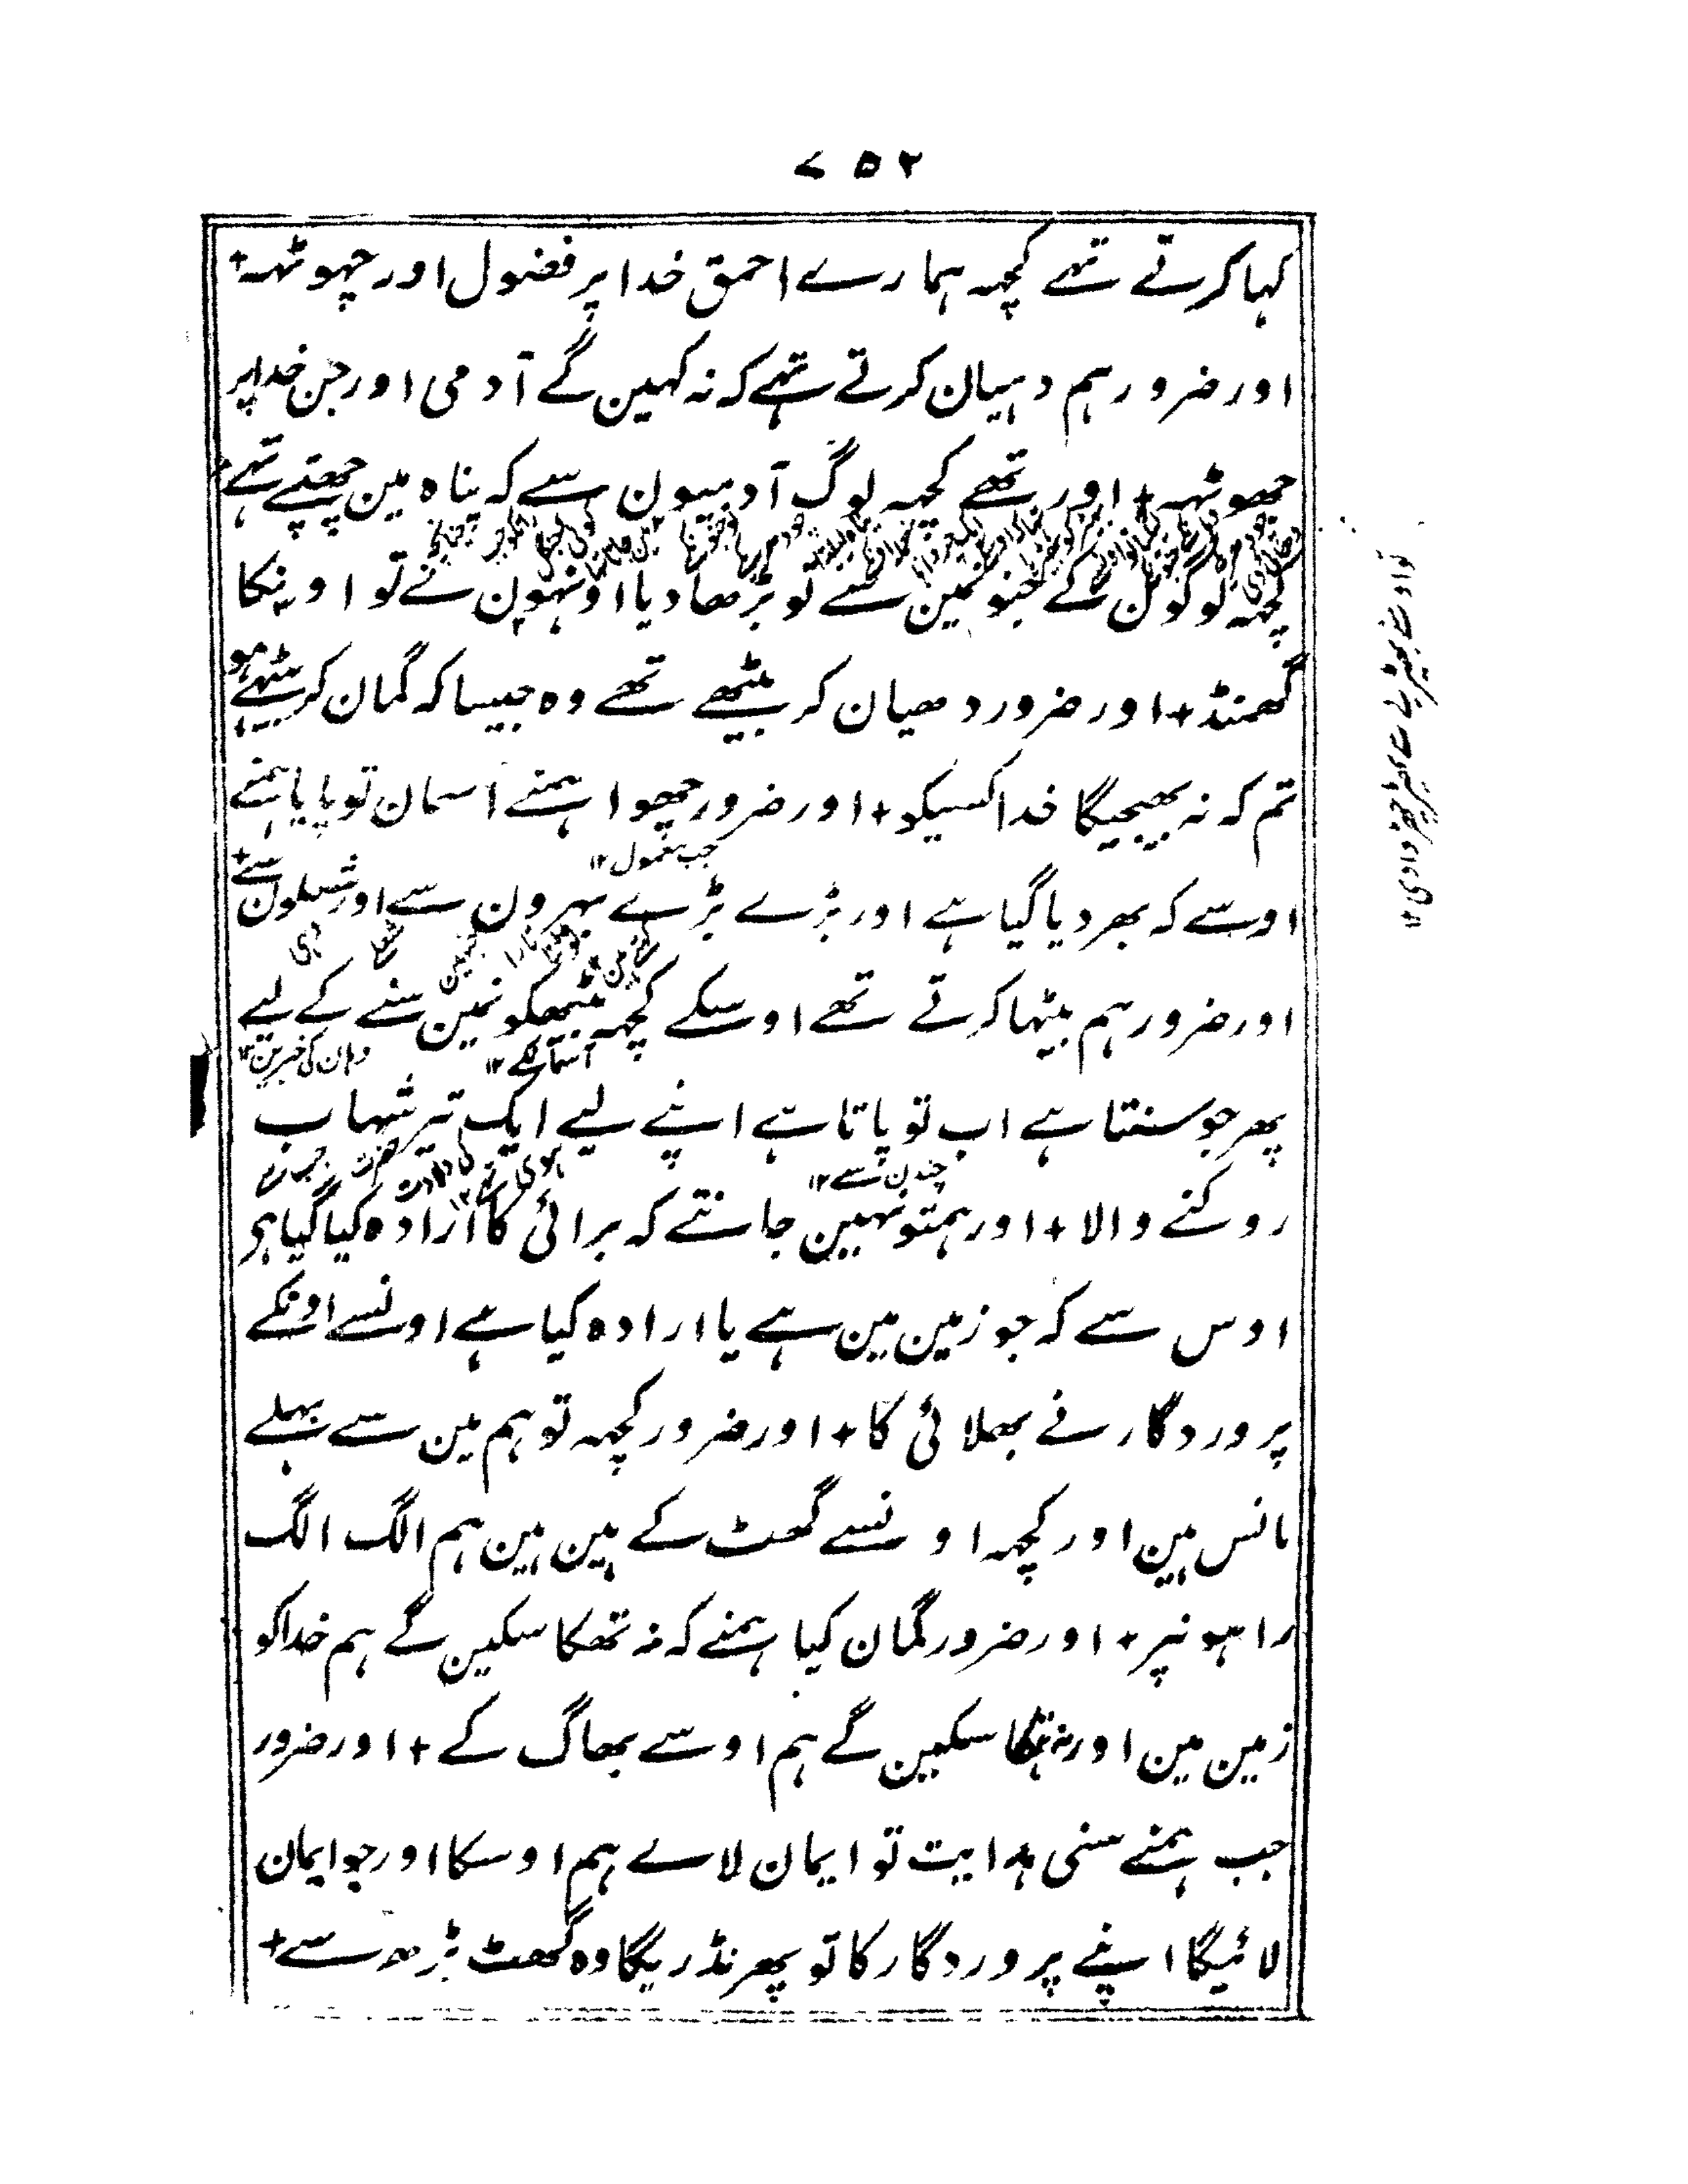 ۷۵۲
کہا کرتے تہے کچہہ ہمارے احمق خدا پر فضول اور جہوٹہہ+
اور ضرور ہم دہیان کرتے تہے کہ نہ کہین گے آدمی اور جن خدا پر
جھوٹہہ+ اور تھے کچہہ لوگ آدمیون سے کہ پناہ مین چھپتے تہے
کچہہ لوگون کے جنونمین سے تو بڑھا دیا اونہون نے تو اونکا
گھمنڈ+ اور ضرور دھیان کر بیٹھے تھے وہ جیسا کہ گمان کر بیٹھے ہو
تم کہ نہ بھیجیگا خدا کسیکو+ اور ضرور چھوا ہمنے آسمان تو پایا ہمنے
جب معمول ۱۲
اوسے کہ بھر دیا گیا ہے اور بڑے بڑے پہرون سے اور شعلون سے+
اور ضرور ہم بیٹہا کرتے تھے اوسکے کچہہ بیٹھکونمین سننے کے لیے
آسمانکے ۱۲ وہان کی خبرین ۱۲
پھر جو سنتا ہے اب تو پاتا ہے اپنے لیے ایک تیر شہاب
چندن سے ۱۲
روکنے والا+ اور ہمتو نہین جانتے کہ برائی کا ارادہ کیا گیا ہی
اوس سے کہ جو زمین مین ہے یا ارادہ کیا ہے اونسے اونکے
پروردگار نے بھلائی کا+ اور ضرور کچہہ تو ہم مین سے بہلے
مانس ہین اور کچہہ اونسے گھٹ کے ہین ہین ہم الگ الگ
راہونپر+ اور ضرور گمان کیا ہمنے کہ نہ تھکا سکین گے ہم خدا کو
زمین مین اور نہ تھکا سکین گے ہم اوسے بھاگ کے+ اور ضرور
جب ہمنے سنی ہدایت تو ایمان لائے ہم اوسکا اور جو ایمان
لائیگا اپنے پروردگار کا تو پھر نڈریگا وہ گھٹ بڑھ سے+